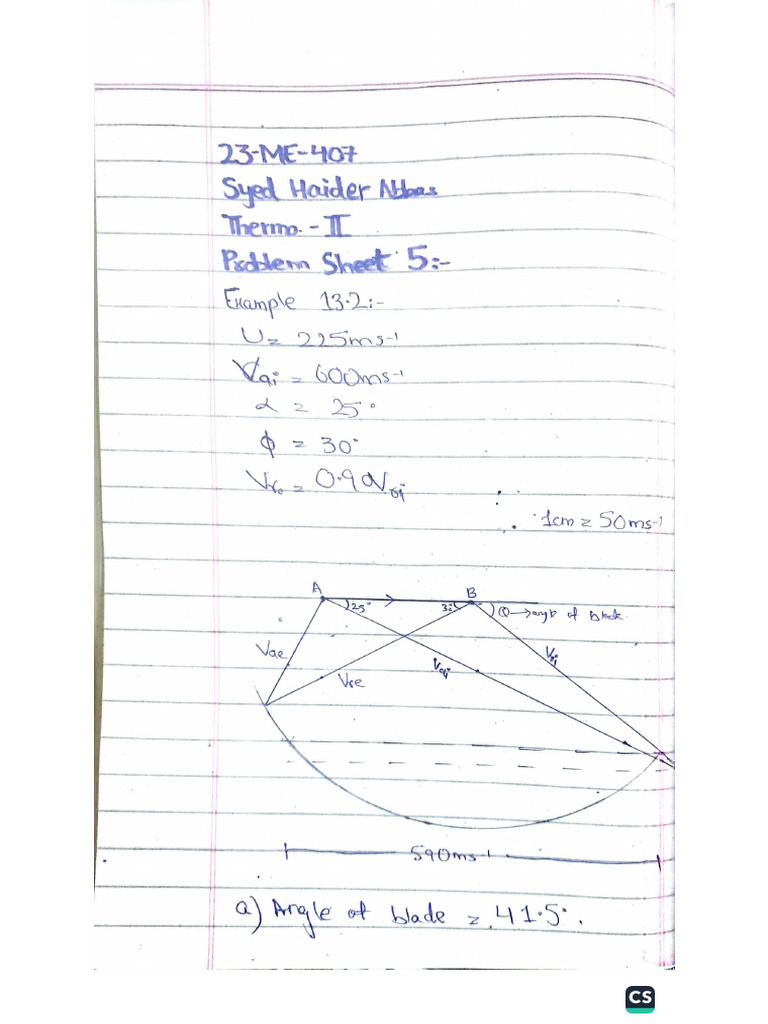 23-ME-407
Syed Haider Abbas
Thermo. - II
Problem Sheet 5:-
Example 13.2:-
U = 225ms⁻¹
Vai = 600ms⁻¹
α = 25°
φ = 30°
Vro = 0.90Vri
1cm = 50ms⁻¹
A B
25° θ → angle of
Vae Vai Vri
Vre
590ms⁻¹
a) Angle of blade = 41.5°.
CS